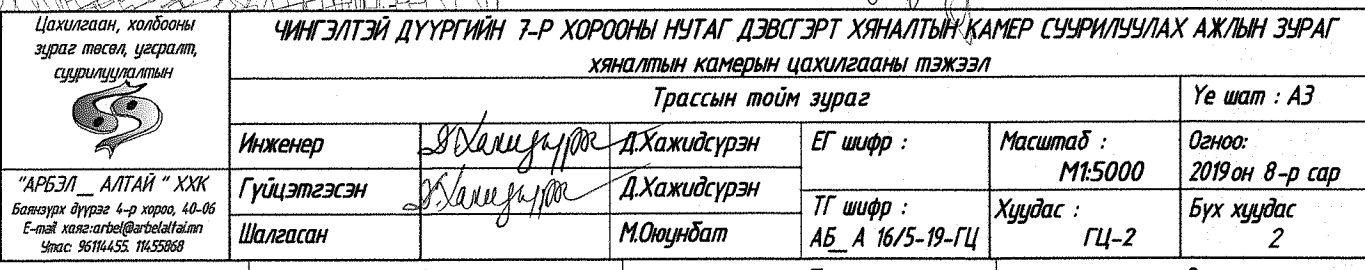 Цахилгаан, холбооны
зураг төсөл, угсралт,
суурилуулалтын
"АРБЭЛ__ АЛТАЙ " ХХК
Баянзүрх дүүрэг 4-р хороо, 40-06
E-mail хаяг:arbel@arbelaltai.mn
Утас: 96114455. 11455868
ЧИНГЭЛТЭЙ ДҮҮРГИЙН 7-Р ХОРООНЫ НУТАГ ДЭВСГЭРТ ХЯНАЛТЫН КАМЕР СУУРИЛУУЛАХ АЖЛЫН ЗУРАГ
хяналтын камерын цахилгааны тэжээл
Трассын тойм зураг
Үе шат : АЗ
Инженер Д.Хажидсүрэн
ЕГ шифр :
Масштаб :
М1:5000
Огноо:
2019 он 8-р сар
Гүйцэтгэсэн Д.Хажидсүрэн
Шалгасан М.Оюунбат
ТГ шифр :
АБ__А 16/5-19-ГЦ
Хуудас :
ГЦ-2
Бүх хуудас
2